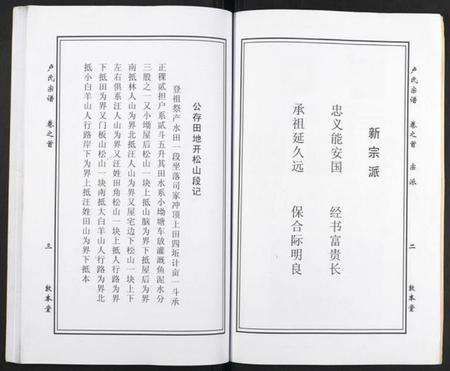 卢氏宗谱 卷之首 宗派 二 敦本堂
新宗派
忠义能安国 经书富贵长
承祖延久远 保合际明良
公存田地开松山段记
登祖祭产水田一段坐落司家冲顶上田四坵计亩一斗承
正粿贰担户系贰斗五升其田水系小塆塘车放灌溉鱼泥水分
三股之一又小塆屋后松山一块上抵山脑为界下抵屋后为界
南抵林人山为界北抵汪人山为界又屋宅边下松山一块上下
左右俱系汪人山为界又汪姓田角松山一块上抵人行路为界
下抵田为界又门板山松山一块南抵大白羊山人行路为界北
抵小白羊山人行路岸下为界上抵汪姓田山为界下抵本
卢氏宗谱 卷之首 三 敦本堂